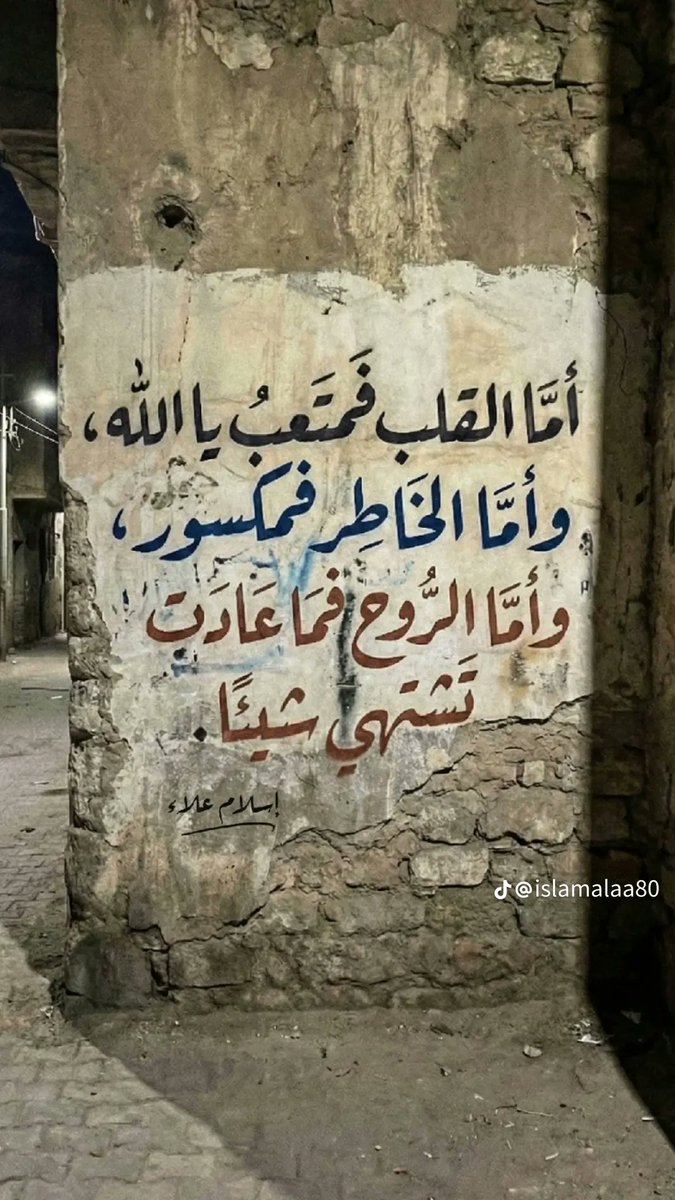 أمَّا القلب فَمتَعبُ يا الله،
وأمَّا الخَاطِر فمكسور،
وأمَّا الرُّوح فمَا عَادَت
تَشتهي شيئًا.
إسلام علاء
@islamalaa80